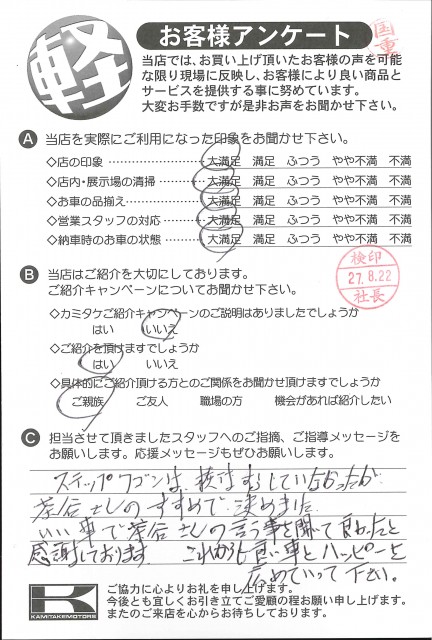 軽
お客様アンケート
国重
当店では、お買い上げ頂いたお客様の声を可能
な限り現場に反映し、お客様により良い商品と
サービスを提供する事に努めています。
大変お手数ですが是非お声をお聞かせ下さい。
A 当店を実際にご利用になった印象をお聞かせ下さい。
◇店の印象 大満足 満足 ふつう やや不満 不満
◇店内・展示場の清掃 大満足 満足 ふつう やや不満 不満
◇お車の品揃え 大満足 満足 ふつう やや不満 不満
◇営業スタッフの対応 大満足 満足 ふつう やや不満 不満
◇納車時のお車の状態 大満足 満足 ふつう やや不満 不満
検印
27.8.22
社長
B 当店はご紹介を大切にしております。
ご紹介キャンペーンについてお聞かせ下さい。
◇カミタケご紹介キャンペーンのご説明はありましたでしょうか
はい いいえ
◇ご紹介を頂けますでしょうか
はい いいえ
◇具体的にご紹介頂ける方とのご関係をお聞かせ頂けますでしょうか
ご親族 ご友人 職場の方 機会があれば紹介したい
C 担当させて頂きましたスタッフへのご指摘、ご指導メッセージを
お願いします。応援メッセージもぜひお願いします。
ステップワゴンは、検討もしていなかったが
茶谷さんのすすめで決めました
いい車で茶谷さんの言う事を聞いて良かったと
感謝しております。これからも良い車とハッピーを
広めていって下さい。
K
KAMITAKEMOTORS
ご協力に心よりお礼を申し上げます。
今後とも宜しくお引き立てご愛顧の程お願い申し上げます。
またのご来店を心からお待ちしております。